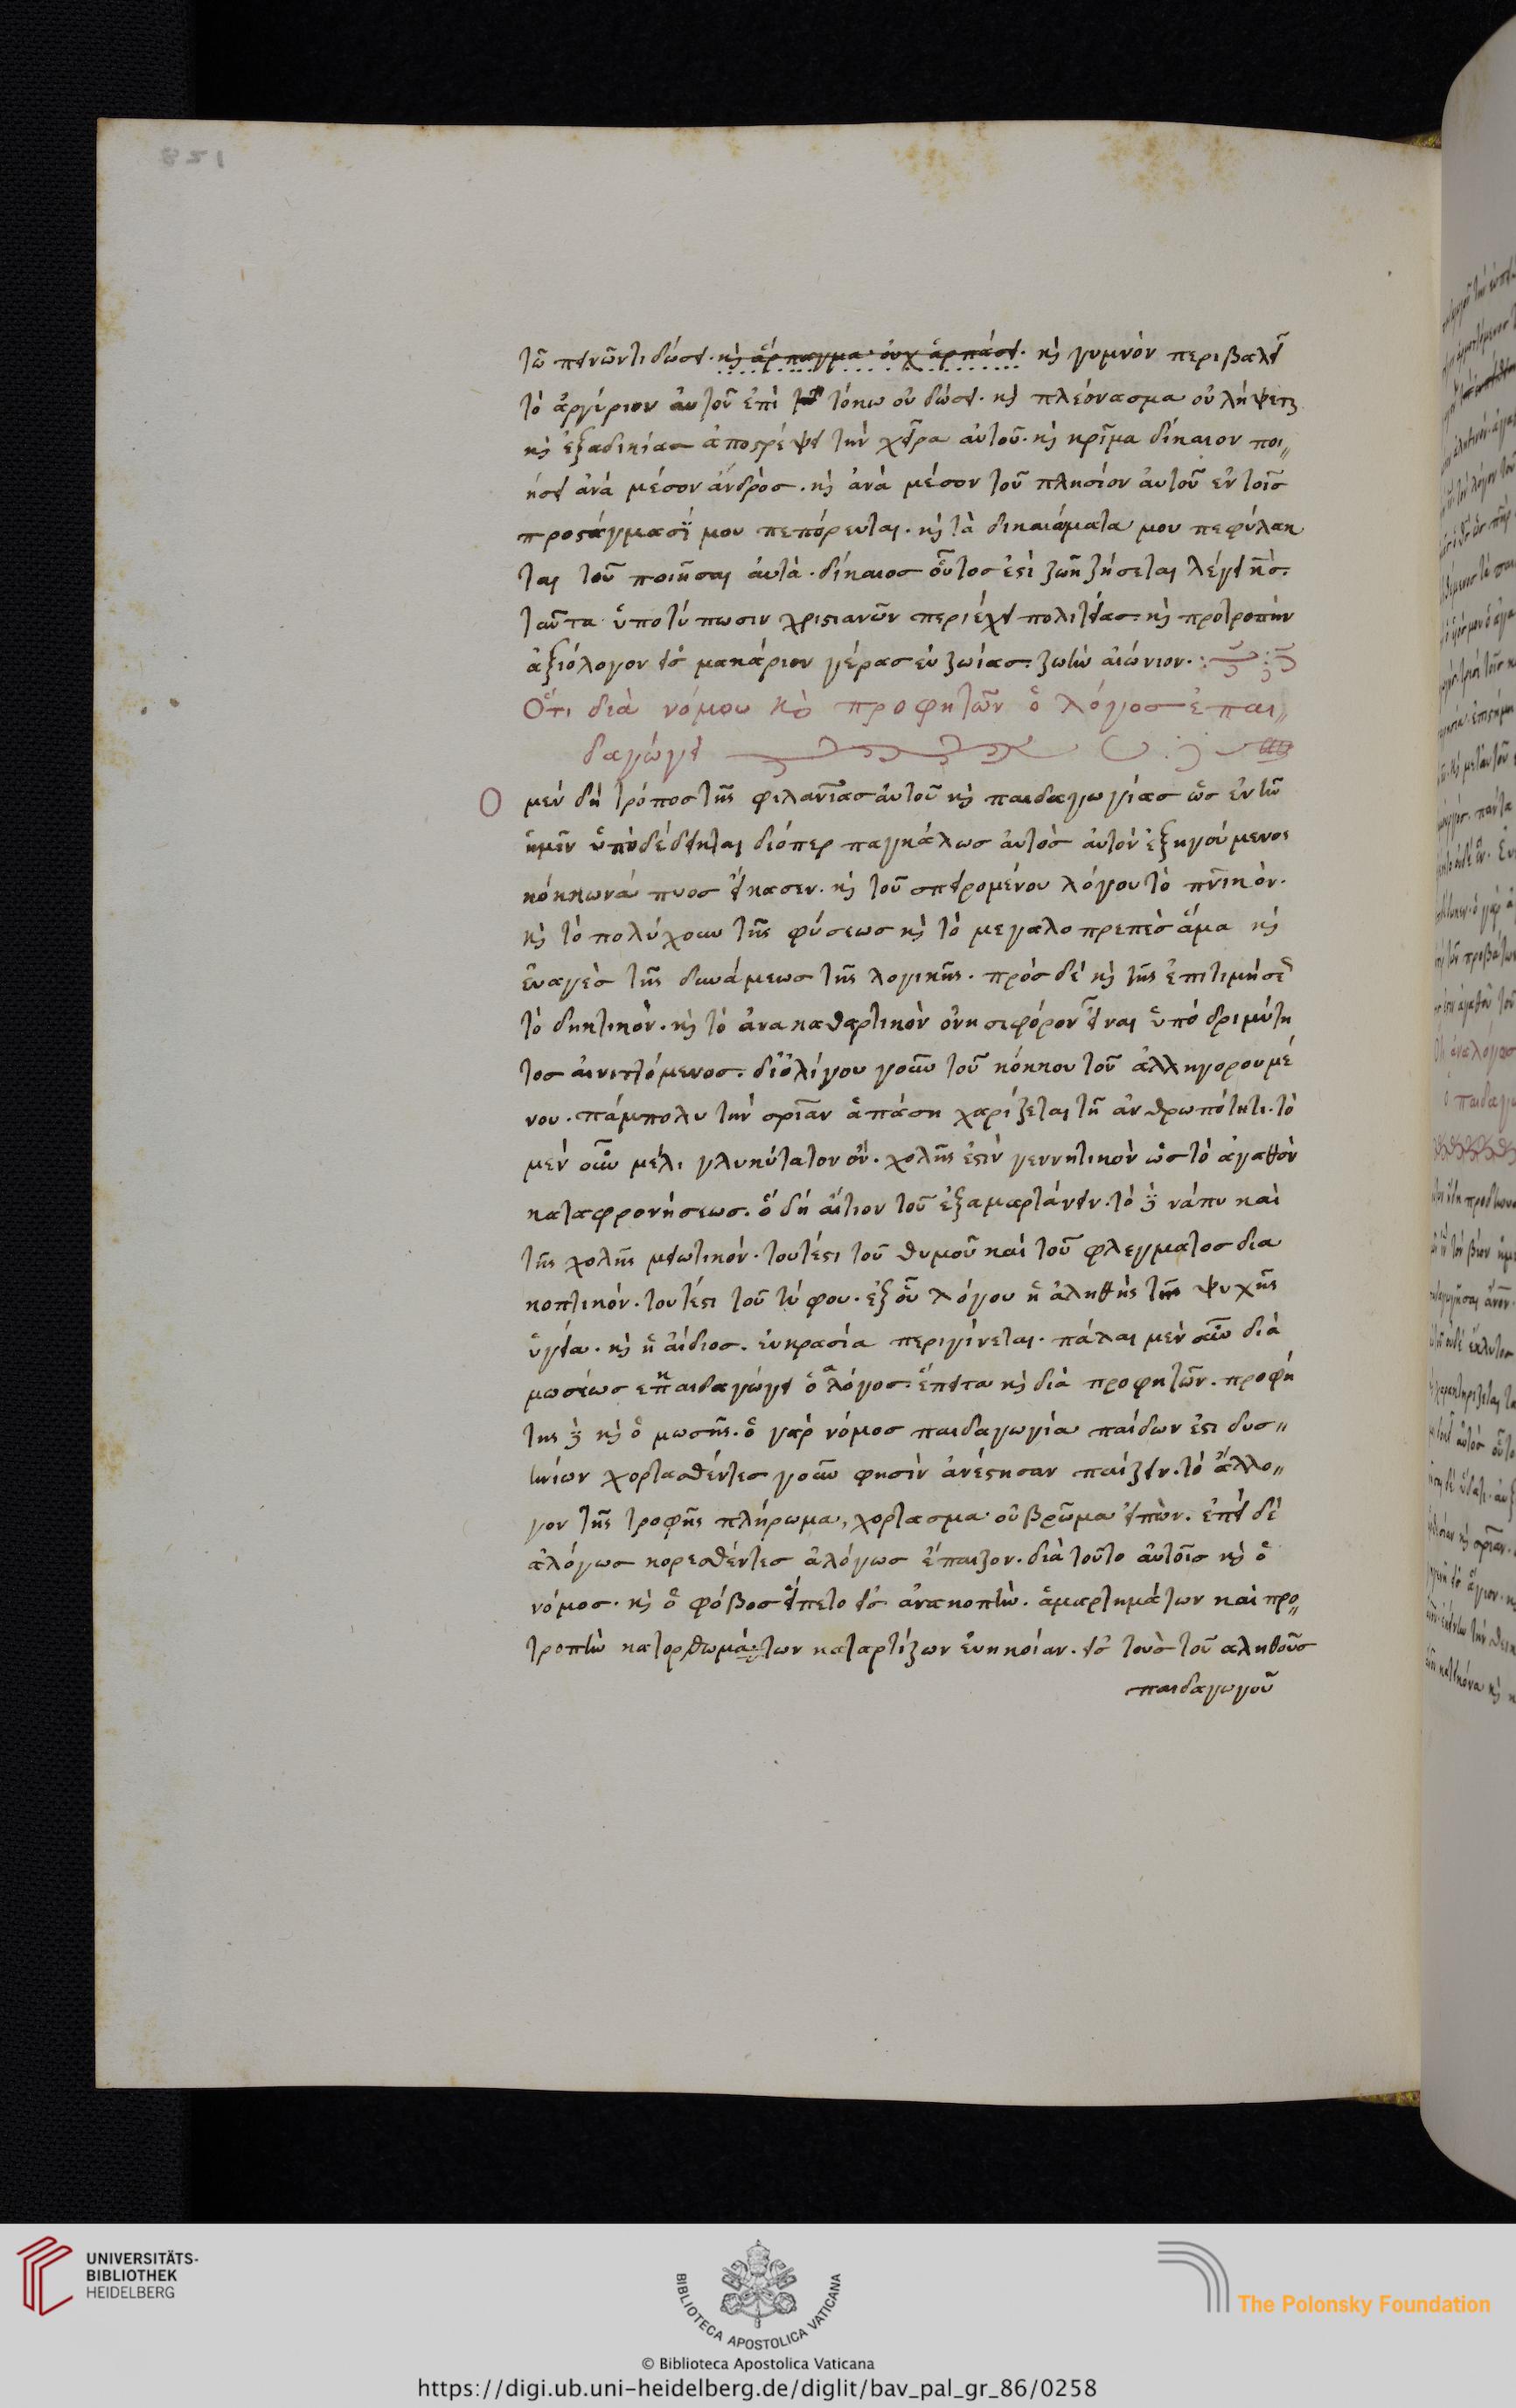 τῶ πεινῶντι δώσει. κὴ ἅρπαγμα οὐχ ἁρπάσει. κὴ γυμνὸν περιβαλεῖ
τὸ ἀργύριον αὐτοῦ ἐπὶ τόκω οὐ δώσει. κὴ πλεόνασμα οὐ λήψεται
κὴ ἐξαδικίας ἀποστρέψει τὴν χεῖρα αὐτοῦ. κὴ κρῖμα δίκαιον ποι„
ήσει ἀνὰ μέσον ἀνδρὸς. κὴ ἀνὰ μέσον τοῦ πλησίον αὐτοῦ ἐν τοῖς
προστάγμασί μου πεπόρευται. κὴ τὰ δικαιώματα μου πεφύλακ
ται τοῦ ποιῆσαι αὐτὰ. δίκαιος οὗτος ἐστὶ ζωῆ ζήσεται λέγει κς̄.
ταῦτα ὑποτύπωσιν χριστιανῶν περιέχει πολιτείας. κὴ προτροπὴν
ἀξιόλογον εἰς μακάριον γέρας εὐζωίας. ζωὴν αἰώνιον.
Ὅτι διὰ νόμου κὴ προφητῶν ὁ λόγος ἐπαι„
δαγώγει
Ο μὲν δὴ τρόπος τῆς φιλανίας αὐτοῦ κὴ παιδαγωγίας ὡς ἐν τῶ
ἡμῖν ὑποδέδεικται διόπερ παγκάλως αὐτὸς αὐτὸν ἐξηγούμενος
κόκκω νάπυος εἴκασεν. κὴ τοῦ σπειρομένου λόγου τὸ πνικὸν.
κὴ τὸ πολύχουν τῆς φύσεως κὴ τὸ μεγαλοπρεπὲς ἅμα κὴ
ἐναγὲς τῆς δυνάμεως τῆς λογικῆς. πρὸς δὲ κὴ τῆς ἐπιτιμήσε
τὸ δηκτικὸν. κὴ τὸ ἀνακαθαρτικὸν ὀνησιφόρον εἶναι ὑπὸ δριμύτη
τος αἰνιττόμενος. διὀλίγου γοῦν τοῦ κόκκου τοῦ ἀλληγορουμέ
νου. πάμπολυ τὴν σρίαν ἁπάση χαρίζεται τῆ ἀνθρωπότητι. τὸ
μὲν οὖν μέλι γλυκύτατον ὂν. χολῆς ἐστὶν γεννητικὸν ὡς τὸ ἀγαθὸν
καταφρονήσεως. ὃ δὴ αἴτιον τοῦ ἐξαμαρτάνειν. τὸ δὲ νάπυ καὶ
τῆς χολῆς μειωτικὸν. τουτέστι τοῦ θυμοῦ καὶ τοῦ φλεγματος δια
κοπτικὸν. τουτέστι τοῦ τύφου. ἐξ οὗ λόγου ἡ ἀληθὴς τῆς ψυχῆς
ὑγεία. κὴ ἡ ἀίδιος. εὐκρασία περιγίνεται. πάλαι μὲν οὖν διὰ
μωσέως επαιδαγώγει ὁ λόγος. ἔπειτα κὴ διὰ προφητῶν. προφή
της δὲ κὴ ὁ μωσῆς. ὁ γὰρ νόμος παιδαγωγία παίδων ἐστι δυσ„
ηνίων χορτασθέντες γοῦν φησὶν ἀνέστησαν παίζειν. τὸ ἄλλο„
γον τῆς τροφῆς πλήρωμα, χορτασμα οὐ βρῶμα εἰπὼν. ἐπεὶ δὲ
ἀλόγως κορεσθέντες ἀλόγως ἔπαιζον. διὰ τοῦτο αὐτοῖς κὴ ὁ
νόμος. κὴ ὁ φόβος εἵπετο εἰς ἀνακοπὴν. ἁμαρτημάτων καὶ προ„
τροπὴν κατορθωμάτων καταρτίζων εὐηκοίαν. εἰς τοὺς τοῦ αληθοῦς
παιδαγωγοῦ
UNIVERSITÄTS-
BIBLIOTHEK
HEIDELBERG
BIBLIOTECA APOSTOLICA VATICANA
The Polonsky Foundation
© Biblioteca Apostolica Vaticana
https://digi.ub.uni-heidelberg.de/diglit/bav_pal_gr_86/0258